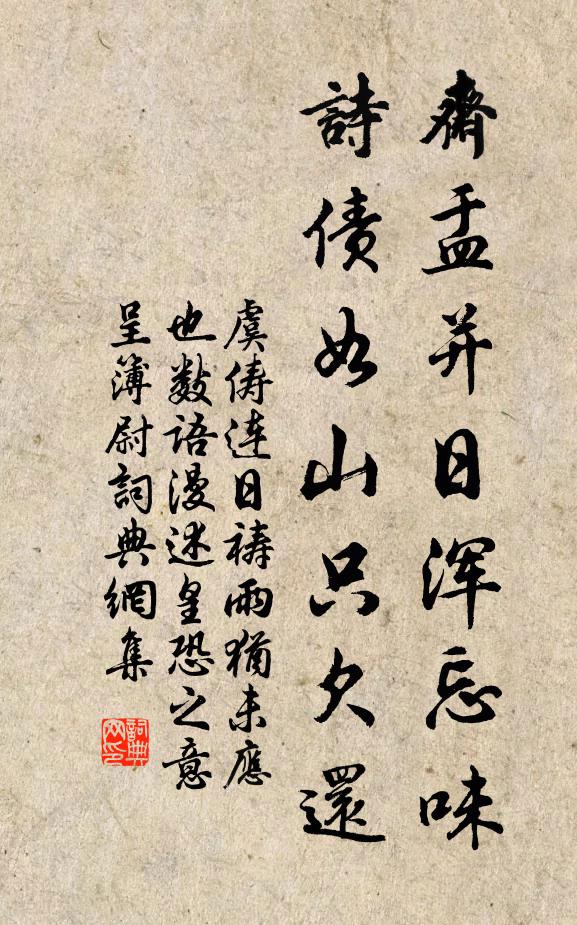 齋盂并日浑忘味
詩债如山只欠還
虞俦連日禱雨猶未應
也數語漫述皇恐之意
呈簿尉詞典網集
詞典
网印